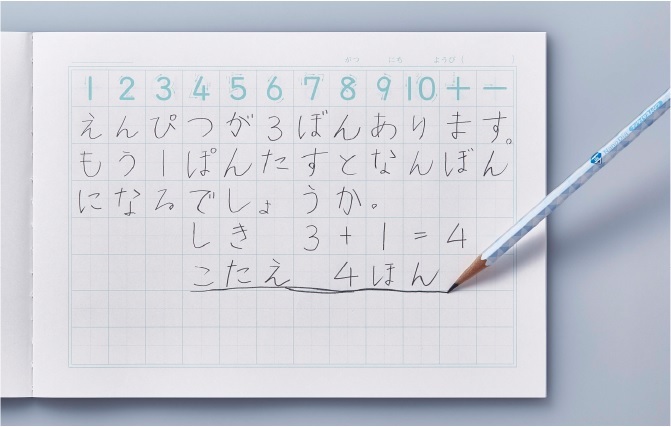 がつ にち ようび
1 2 3 4 5 6 7 8 9 10 + −
えんぴつが3ぼんあります。
もう1ぽんたすとなんぼん
になるでしょうか。
しき 3+1=4
こたえ 4ほん